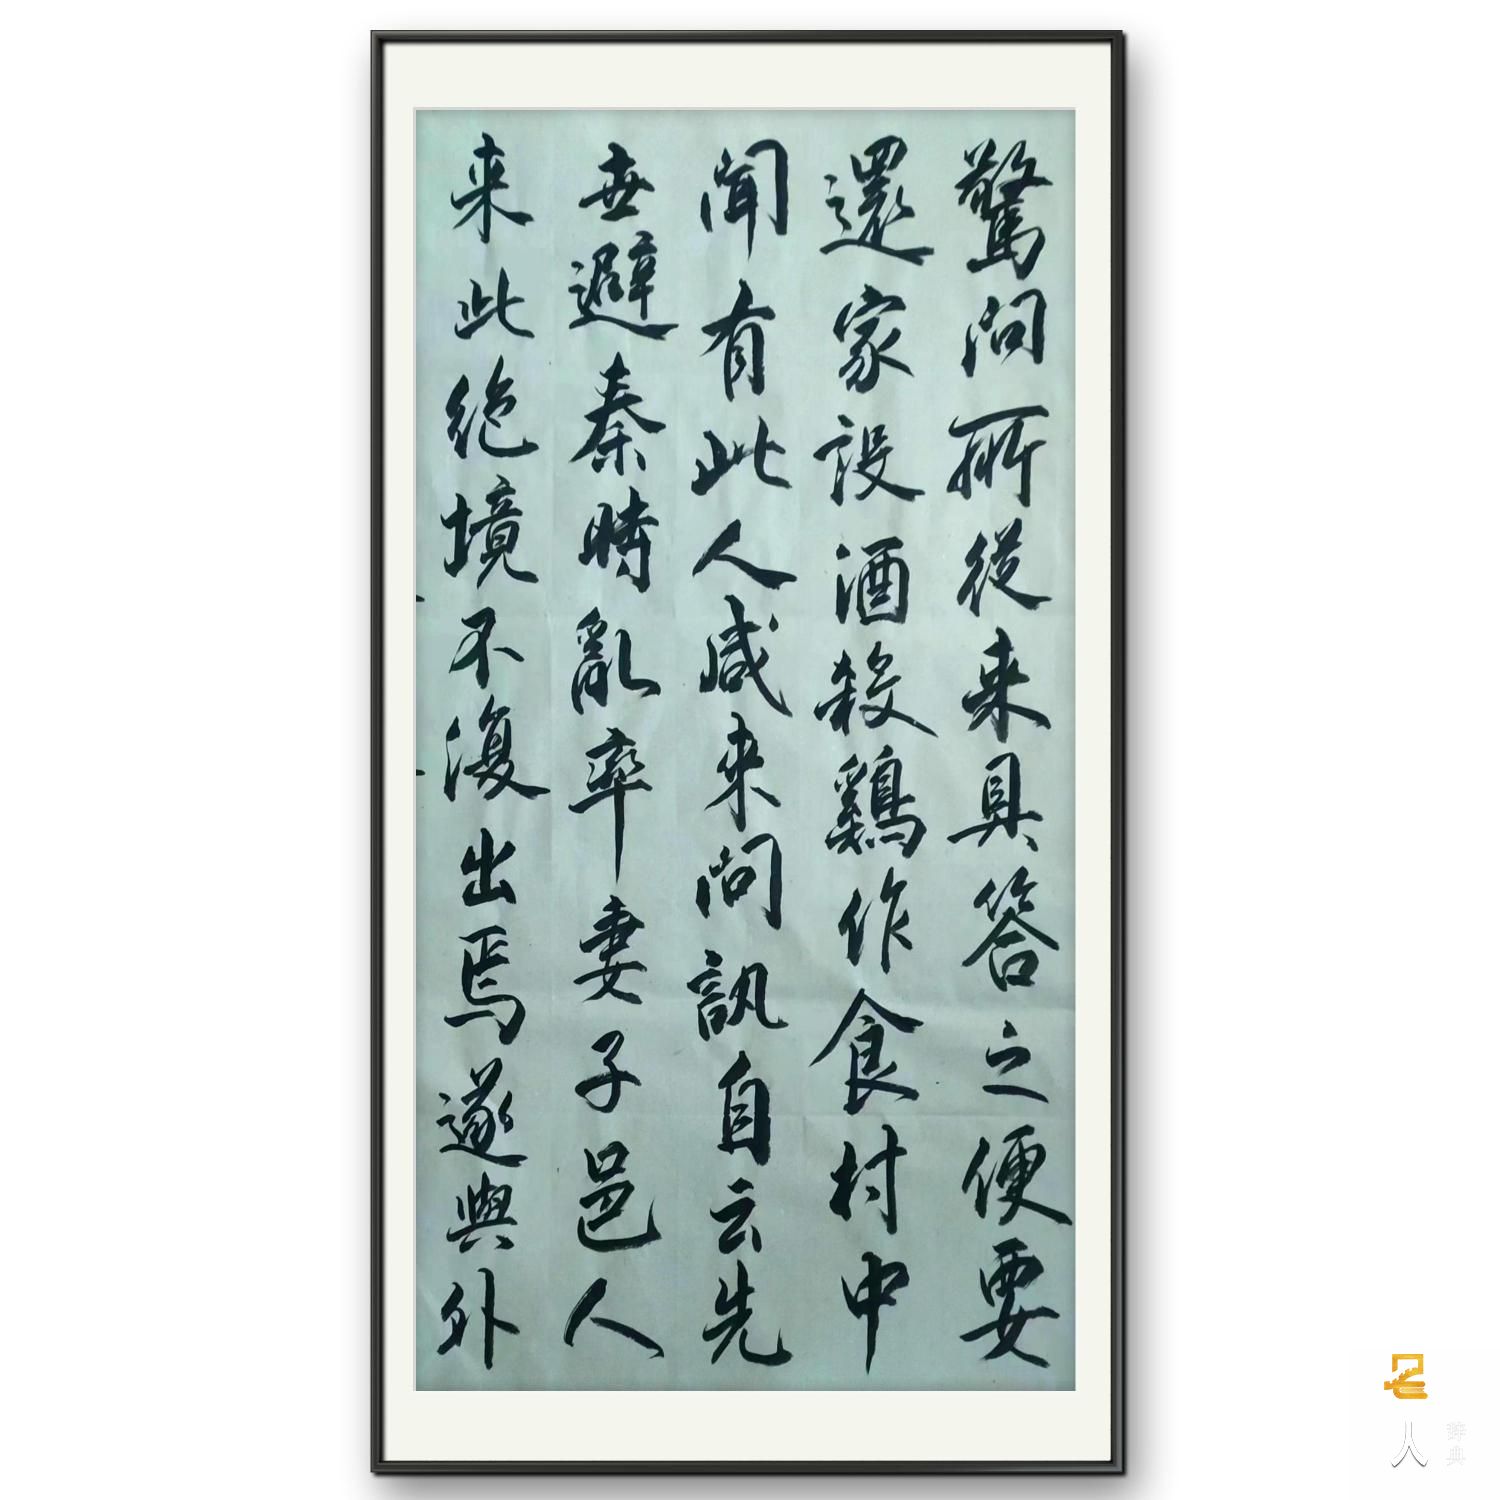 驚問所從来具答之便要
還家設酒殺鷄作食村中
聞有此人咸来問訊自云先
世避秦時亂率妻子邑人
来此絶境不復出焉遂與外
名
人
辞典